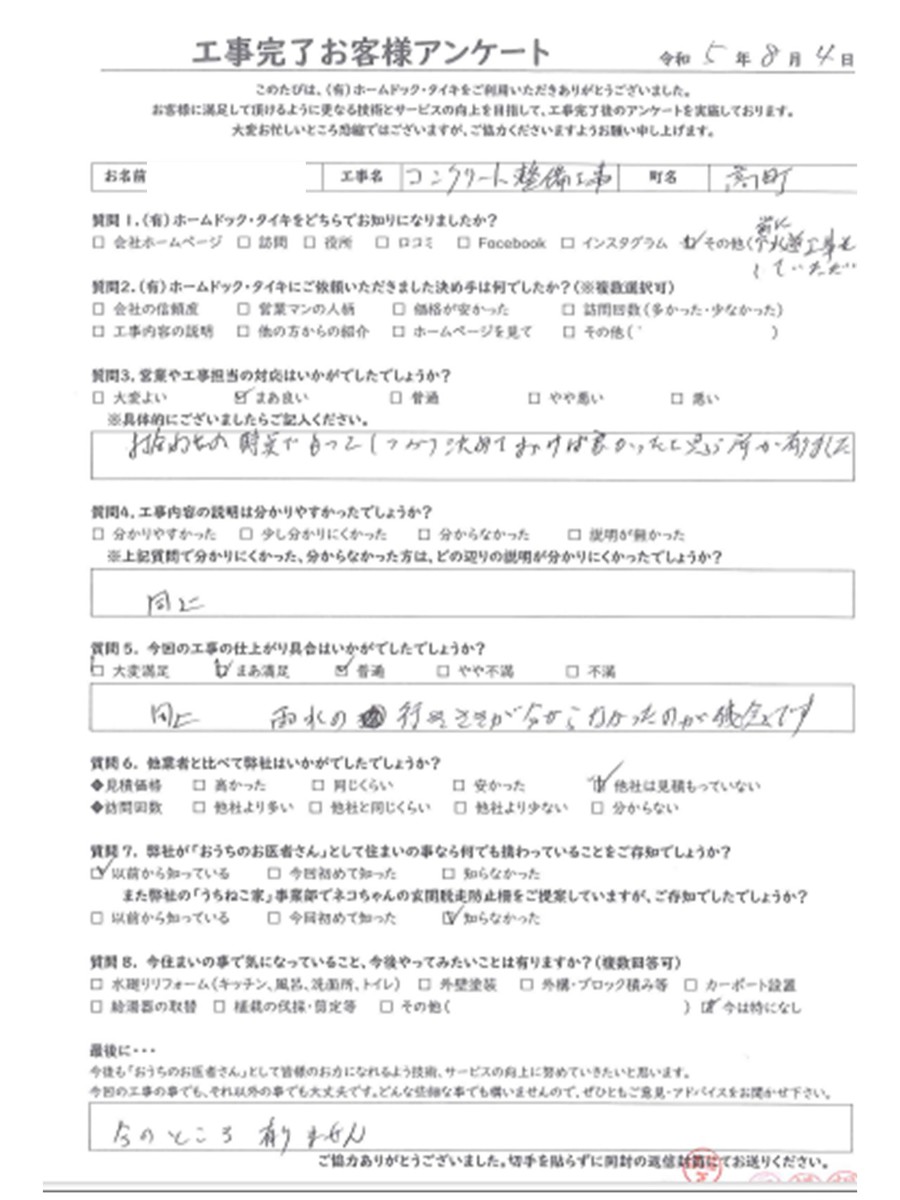 工事完了お客様アンケート 令和 5 年 8 月 4 日
このたびは、(有)ホームドック・タイキをご利用いただきありがとうございました。
お客様に満足して頂けるように更なる技術とサービスの向上を目指して、工事完了後のアンケートを実施しております。
大変お忙しいところ恐縮ではございますが、ご協力くださいますようお願い申し上げます。
お名前 工事名 コンクリート整備工事 町名
質問1.(有)ホームドック・タイキをどちらでお知りになりましたか?
□ 会社ホームページ □ 訪問 □ 役所 □ 口コミ □ Facebook □ インスタグラム ☑ その他( 前に 工事を
していただい
質問2.(有)ホームドック・タイキにご依頼いただきました決め手は何でしたか?(※複数選択可)
□ 会社の信頼度 □ 営業マンの人柄 □ 価格が安かった □ 訪問回数(多かった・少なかった)
□ 工事内容の説明 □ 他の方からの紹介 □ ホームページを見て □ その他( )
質問3.営業や工事担当の対応はいかがでしたでしょうか?
□ 大変よい ☑ まあ良い □ 普通 □ やや悪い □ 悪い
※具体的にございましたらご記入ください。
打合わせの時点でもっとしっかり決めておけば良かったと思う所が有りました
質問4.工事内容の説明は分かりやすかったでしょうか?
□ 分かりやすかった □ 少し分かりにくかった □ 分からなかった □ 説明が無かった
※上記質問で分かりにくかった、分からなかった方は、どの辺りの説明が分かりにくかったでしょうか?
同上
質問5.今回の工事の仕上がり具合はいかがでしたでしょうか?
□ 大変満足 ☑ まあ満足 ☑ 普通 □ やや不満 □ 不満
同上 雨水の 行きさきが分からなかったのが残念です
質問6.他業者と比べて弊社はいかがでしたでしょうか?
◆見積価格 □ 高かった □ 同じくらい □ 安かった ☑ 他社は見積もっていない
◆訪問回数 □ 他社より多い □ 他社と同じくらい □ 他社より少ない □ 分からない
質問7.弊社が「おうちのお医者さん」として住まいの事なら何でも携わっていることをご存知でしょうか?
☑ 以前から知っている □ 今回初めて知った □ 知らなかった
また弊社の「うちねこ家」事業部でネコちゃんの玄関脱走防止柵をご提案していますが、ご存知でしたでしょうか?
□ 以前から知っている □ 今回初めて知った ☑ 知らなかった
質問8.今住まいの事で気になっていること、今後やってみたいことは有りますか?(複数回答可)
□ 水廻りリフォーム(キッチン、風呂、洗面所、トイレ) □ 外壁塗装 □ 外構・ブロック積み等 □ カーポート設置
□ 給湯器の取替 □ 植栽の伐採・剪定等 □ その他( ) ☑ 今は特になし
最後に・・・
今後も「おうちのお医者さん」として皆様のお力になれるよう技術、サービスの向上に努めていきたいと思います。
今回の工事の事でも、それ以外の事でも大丈夫です。どんな些細な事でも構いませんので、ぜひともご意見・アドバイスをお聞かせ下さい。
今のところ 有りません
ご協力ありがとうございました。切手を貼らずに同封の返信封筒にてお送りください。